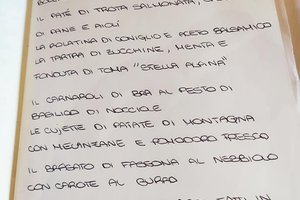 IL PATÈ DI TROTA SALMONATA,
DI PANE E AIOLI
LA ROLATINA DI CONIGLIO E ACETO BALSAMICO
LA TARTRA DI ZUCCHINE, MENTA E
FONDUTA DI TOMA "STELLA ALPINA"
IL CARNAROLI DI BRA AL PESTO DI
BASILICO DI NOCCIOLE
LE CUJETTE DI PATATE DI MONTAGNA
CON MELANZANE E POMODORO FRESCO
IL BRASATO DI FASSONA AL NEBBIOLO
CON CAROTE AL BURRO
FATTI IN